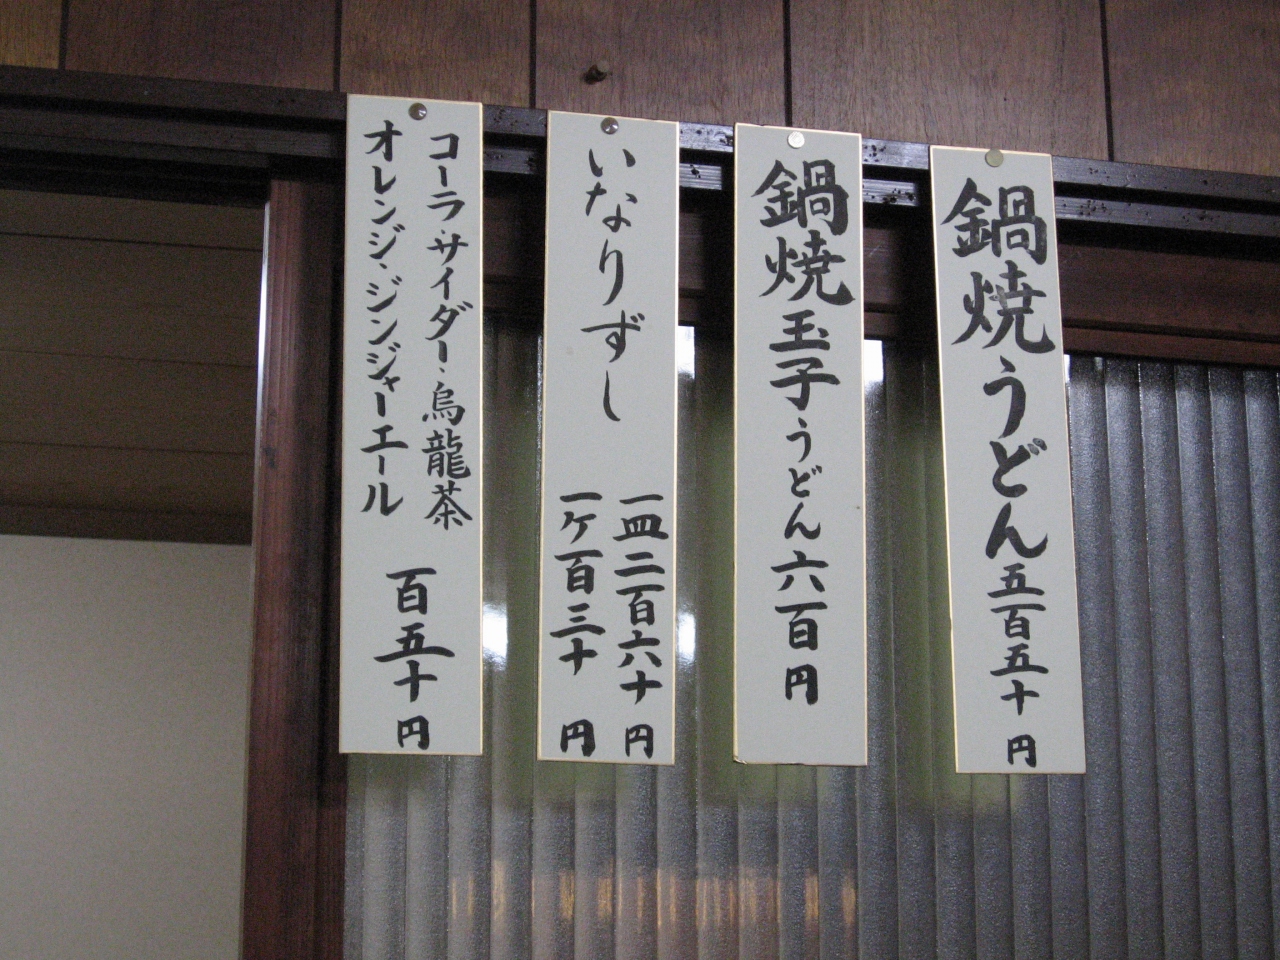 鍋焼うどん五百五十円
鍋焼玉子うどん六百円
いなりずし
一皿二百六十円
一ケ百三十円
コーラ、サイダー、烏龍茶
オレンジ、ジンジャーエール
百五十円